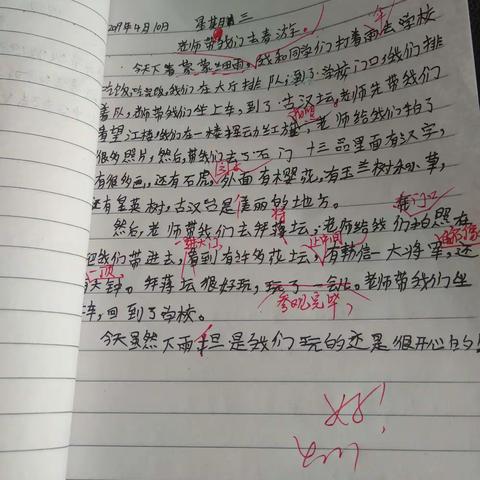 2019年4月10日 星期三
老师带我们去春游
今天下着蒙蒙细雨。我和同学们打着雨去学校
伞
吃饭,吃完饭,我们在大厅排队,到了学校门口,我们排
着队,老师带我们坐上车,到了古汉坛,老师先带我们
看望江楼,我们在一楼提示牌,老师给我们拍了
很多照片,然后,带我们去了石门十三品里面有汉字,
有很多画,还有石虎,外面有樱花,有玉兰树和小草,
还有皇英树,古汉台是美丽的地方。
然后,老师带我们去拜将坛,老师给我们拍照在
将
靠门口
把我们带进去,看到有许多花坛,有韩信大将军,还
一进大门
正中间
有大钟。拜将坛很好玩,玩了一会儿。老师带我们坐
一顶
参观完毕,
车,回到了学校。
今天虽然下雨,但是我们玩的还是很开心的!
好!